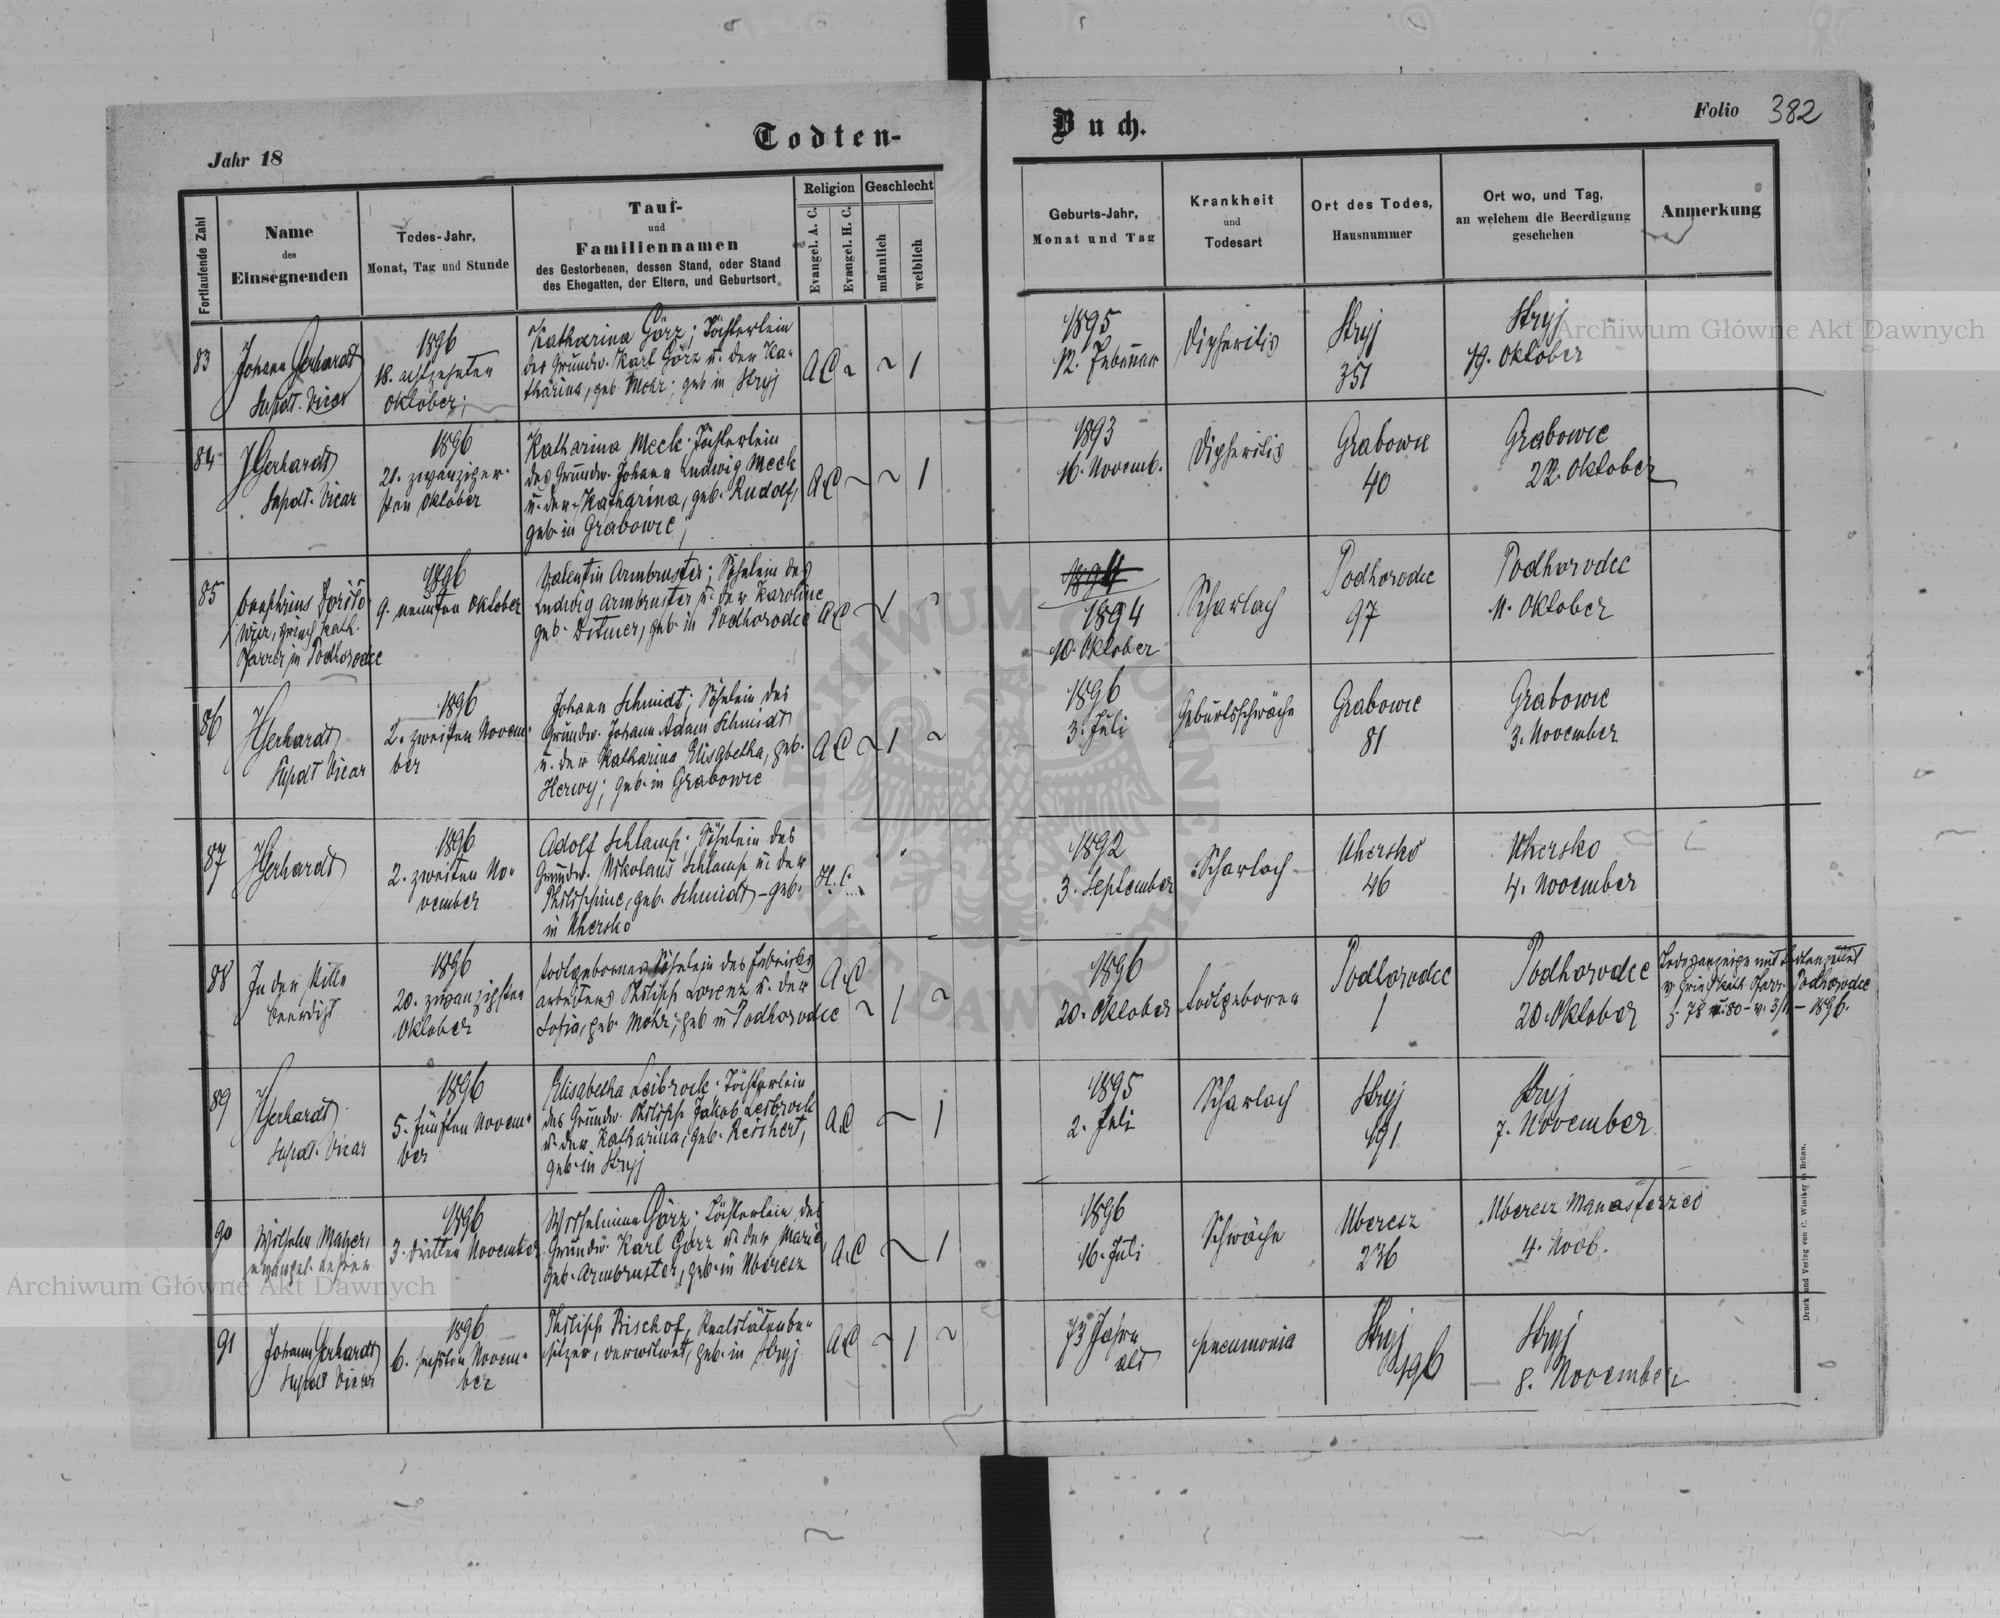 Todten-Buch.
Jahr 18
Folio 382
Fortlaufende Zahl
Name
des
Einsegnenden
Todes-Jahr,
Monat, Tag und Stunde
Tauf-
und
Familiennamen
des Gestorbenen, dessen Stand, oder Stand
des Ehegatten, der Eltern, und Geburtsort
Religion
Evangel. A. C.
Evangel. H. C.
Geschlecht
männlich
weiblich
Geburts-Jahr,
Monat und Tag
Krankheit
und
Todesart
Ort des Todes,
Hausnummer
Ort wo, und Tag,
an welchem die Beerdigung
geschehen
Anmerkung
83
Johann Gerhardt
Supdt. Vicar
1896
18. achtzehnten
Oktober;
Katharina Görz; Töchterlein
des Grundw. Karl Görz u. der Ka-
tharina, geb. Mohr; geb in Stryj
AC ~ ~ 1
1895
12. Februar
Dipheritis
Stryj
351
Stryj
19. Oktober
84
JGerhardt
Supdt. Vicar
1896
21. zwanziger-
sten Oktober
Katharina Meck; Töchterlein
des Grundw. Johann Ludwig Meck
u. der Katharina, geb. Rudolf,
geb in Grabowic;
AC ~ ~ 1
1893
16. Novemb.
Dipheritis
Grabowic
40
Grabowic
22. Oktober
85
Pfarrer in Podhorodce
1896
9. neunten Oktober
Valentin Armbruster; Söhnlein des
Ludwig Armbruster u. der Karoline
geb. Ditmer, geb in Podhorodce
AC ~ 1 ~
1894
1894
10. Oktober
Scharlach
Podhorodce
97
Podhorodce
11. Oktober
86
JGerhardt
Supdt Vicar
1896
2. zweiten Novem-
ber
Johann Schmidt; Söhnlein des
Grundw. Johann Adam Schmidt
u. der Katharina Elisabetha, geb.
Herwy; geb. in Grabowic
AC ~ 1 ~
1896
3. Juli
Geburtsschwäche
Grabowic
81
Grabowic
3. November
87
JGerhardt
1896
2. zweiten No-
vember
Adolf Schlamp; Söhnlein des
Grundw. Nikolaus Schlamp u. der
Philippine, geb. Schmidt - geb.
in Uhersko
H. C.
1892
3. September
Scharlach
Uhersko
46
Uhersko
4. November
88
In der Stille
beerdigt
1896
20. zwanzigsten
Oktober
todtgebornes Söhnlein des Fabriks
arbeiters Philipp Lorenz u. der
Sofia, geb. Mohr; geb in Podhorodce
AC ~ 1 ~
1896
20. Oktober
todtgeboren
Podhorodce
1
Podhorodce
20. Oktober
Todesanzeige mit Todtenzettel
v. griech kath. Pfarr. Podhorodce
89
JGerhardt
Supdt. Vicar
1896
5. fünften Novem-
ber
Elisabetha Leibrock; Töchterlein
des Grundw. Philipp Jakob Leibrock
u. der Katharina, geb. Reichert,
geb. in Stryj
AC ~ 1
1895
2. Juli
Scharlach
Stryj
191
Stryj
7. November
90
Wilhelm Mayer,
evangel. Lehrer
1896
3. dritten November
Wilhelmine Görz; Töchterlein des
Grundw. Karl Görz u. der Marie,
geb. Armbruster, geb. in Uberesz
A.C ~ 1
1896
16. Juli
Schwäche
Uberesz
236
4. Novb.
91
Johann Gerhardt
Supdt Vicar
1896
6. sechsten Novem-
ber
Philipp Bischof, Realitätenbe-
sitzer, verwitwet, geb. in Stryj
AC ~ 1 ~
73 Jahre
alt
pneumonia
Stryj
196
Stryj
8. November
Druck und Verlag von C. Winiker in Brünn.
Archiwum Główne Akt Dawnych
Archiwum Główne Akt Dawnych
ARCHIWUM GŁÓWNE AKT DAWNYCH